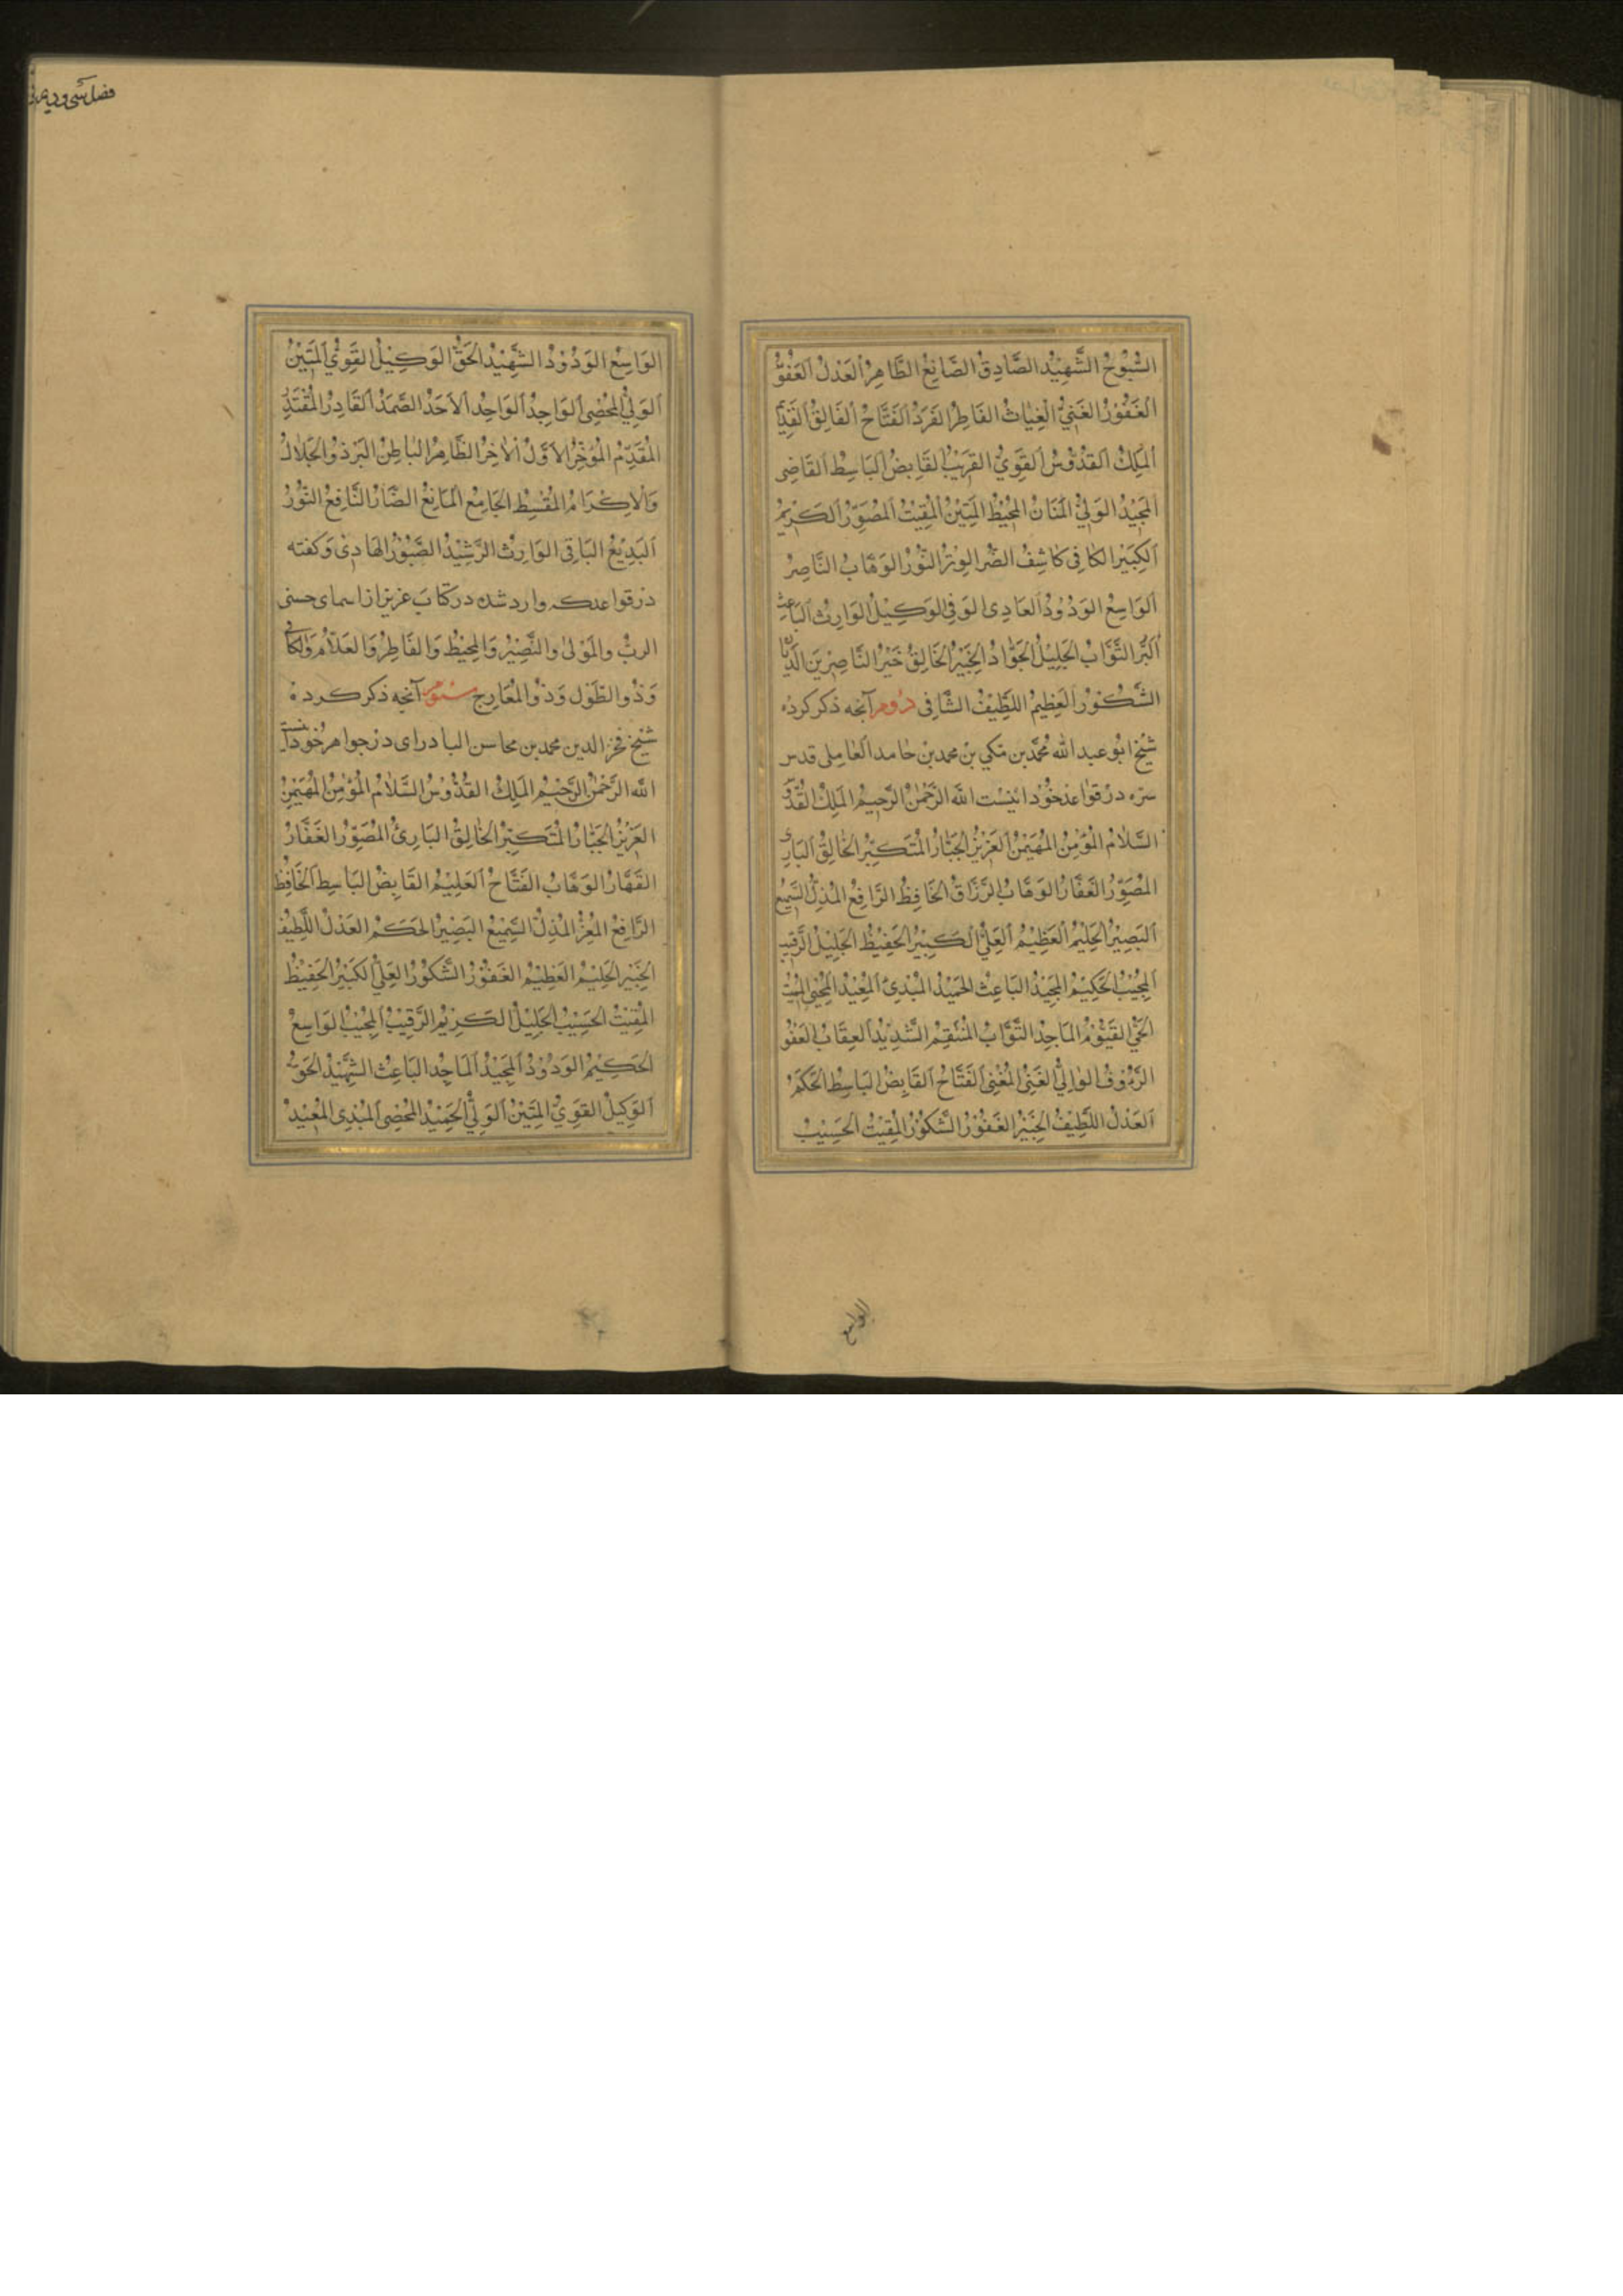 السُّبُّوْحُ الشَّهِيْدُ الصَّادِقُ الصَّانِعُ الطَّاهِرُ العَدْلُ العَفُوُّ
الغَفُوْرُ الغَنِيُّ الغِيَاثُ الفَاطِرُ الفَرَدُ الفَتَّاحُ الفَالِقُ القَدِيْمُ
المَلِكُ القُدُّوْسُ القَوِيُّ القَرِيْبُ القَابِضُ البَاسِطُ القَاضِى
المَجِيْدُ الوَلِيُّ المَنَانُ المُحِيْطُ المُبِيْنُ المُقِيْتُ المُصَوِّرُ الكَرِيْمُ
الكَبِيْرُ الكَافِى كَاشِفُ الضُّرِ الوِتْرُ النُّوْرُ الوَهَّابُ النَّاصِرُ
الوَاسِعُ الوَدُوْدُ الهَادِى الوَفِى الوَكِيْلُ الوَارِثُ البَاعِثُ
البَرُّ التَّوَّابُ الجَلِيْلُ الجَوَادُ الخَبِيْرُ الخَالِقُ خَيْرُ النَّاصِرِيْنَ الدَّيَّانُ
الشَّكُوْرُ العَظِيْمُ اللَّطِيْفُ الشَّافِى دوم آنچه ذكر كرده
شيخ ابو عبد الله محمّد بن مكي بن محمد بن حامد العاملى قدس
سره در قواعد خود اينست الله الرَّحْمٰنُ الرَّحِيْمُ المَلِكُ القُدُّوْسُ
السَّلَامُ المُؤْمِنُ المُهَيْمِنُ العَزِيْزُ الجَبَّارُ المُتَكَبِّرُ الخَالِقُ البَارِئُ
المُصَوِّرُ الغَفَّارُ الوَهَّابُ الرَّزَّاقُ الخَافِضُ الرَّافِعُ المُذِلُّ السَّمِيْعُ
البَصِيْرُ الحَلِيْمُ العَظِيْمُ العَلِيُّ الكَبِيْرُ الحَفِيْظُ الجَلِيْلُ الرَّقِيْبُ
المُجِيْبُ الحَكِيْمُ المَجِيْدُ البَاعِثُ الحَمِيْدُ المُبْدِئُ المُعِيْدُ المُحْيِى المُمِيْتُ
الحَيُّ القَيُّوْمُ المَاجِدُ التَّوَّابُ المُنْتَقِمُ الشَّدِيْدُ العِقَابُ العَفُوُّ
الرَّءُوْفُ الوَالِيُّ الغَنِىُّ المُغْنِى الفَتَّاحُ القَابِضُ البَاسِطُ الحَكَمُ
العَدْلُ اللَّطِيْفُ الخَبِيْرُ الغَفُوْرُ الشَّكُوْرُ المُقِيْتُ الحَسِيْبُ
الواسع
الوَاسِعُ الوَدُوْدُ الشَّهِيْدُ الحَقُّ الوَكِيْلُ القَوِيُّ المَتِيْنُ
الوَلِيُّ المُحْصِى الوَاجِدُ الوَاحِدُ الاَحَدُ الصَّمَدُ القَادِرُ المُقْتَدِرُ
المُقَدِّمُ المُؤَخِّرُ الاَوَّلُ الاٰخِرُ الظَّاهِرُ البَاطِنُ البَرُّ ذُو الجَلَالِ
وَالاِكْرَامِ المُقْسِطُ الجَامِعُ المَانِعُ الضَّارُ النَّافِعُ النُّوْرُ
البَدِيْعُ البَاقِى الوَارِثُ الرَّشِيْدُ الصَّبُوْرُ الهَادِىْ وَ كفته
در قواعد كه وارد شده در كتاب عزيز از اسماى حسنى
الربُّ والمَوْلٰى والنَّصِيْرُ وَالمُحِيْطُ وَالفَاطِرُ وَالعَلَّامُ وَالكَافِى
وَذُو الطَّوْلِ وَذُو المَعَارِجِ سيوم آنچه ذكر كرده
شيخ فخر الدين محمد بن محاسن البادراى در جواهر خود اينست
الله الرَّحْمٰنُ الرَّحِيْمُ المَلِكُ القُدُّوْسُ السَّلَامُ المُؤْمِنُ المُهَيْمِنُ
العَزِيْزُ الجَبَّارُ المُتَكَبِّرُ الخَالِقُ البَارِئُ المُصَوِّرُ الغَفَّارُ
القَهَّارُ الوَهَّابُ الفَتَّاحُ العَلِيْمُ القَابِضُ البَاسِطُ الخَافِضُ
الرَّافِعُ المُعِزُّ المُذِلُّ السَّمِيْعُ البَصِيْرُ الحَكَمُ العَدْلُ اللَّطِيْفُ
الخَبِيْرُ الحَلِيْمُ العَظِيْمُ الغَفُوْرُ الشَّكُوْرُ العَلِيُّ الكَبِيْرُ الحَفِيْظُ
المُقِيْتُ الحَسِيْبُ الجَلِيْلُ الكَرِيْمُ الرَّقِيْبُ المُجِيْبُ الوَاسِعُ
الحَكِيْمُ الوَدُوْدُ المَجِيْدُ المَاجِدُ البَاعِثُ الشَّهِيْدُ الحَقُّ
الوَكِيْلُ القَوِيُّ المَتِيْنُ الوَلِيُّ الحَمِيْدُ المُحْصِى المُبْدِى المُعِيْدُ